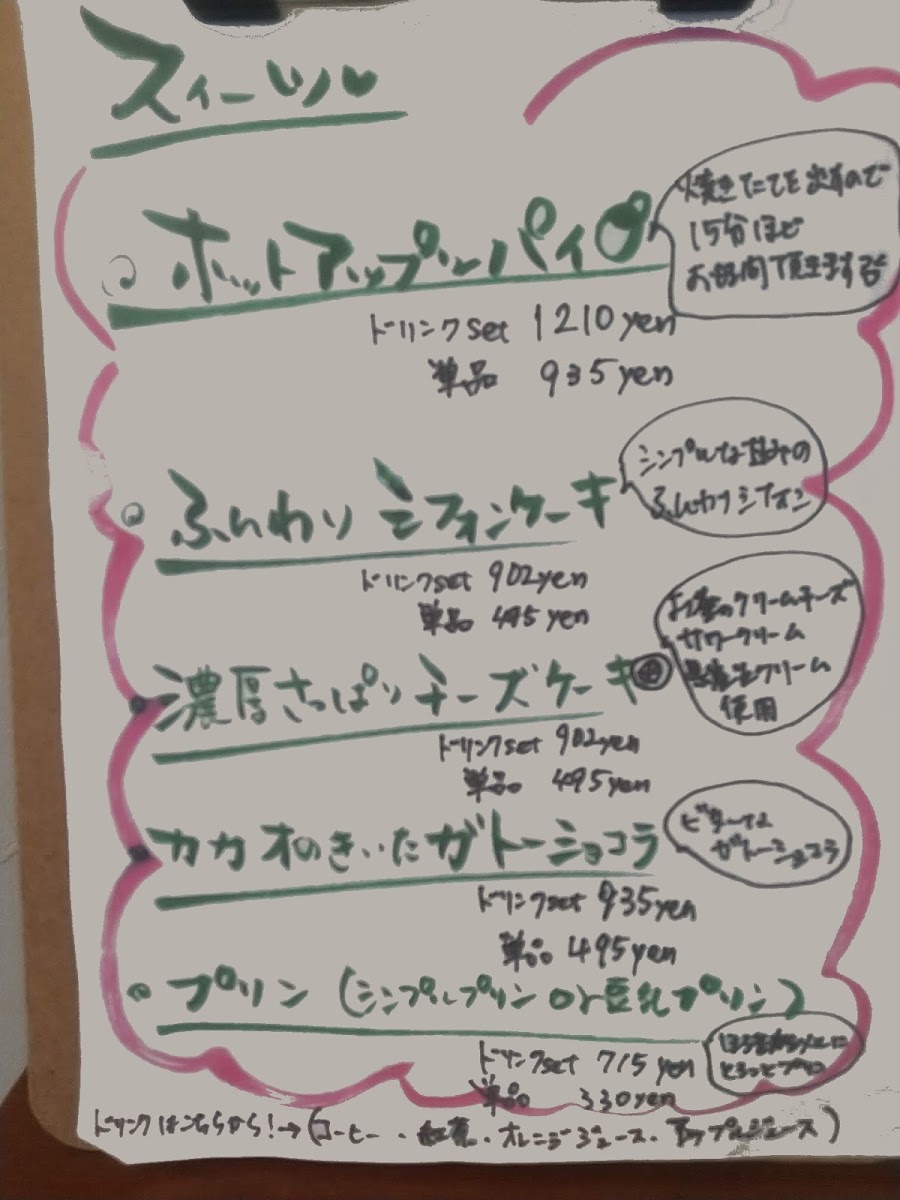 スィーツ♥
ホットアップルパイ
焼きたてを出すので
15分ほど
お時間頂きます
ドリンクset 1210yen
単品 935yen
ふんわり シフォンケーキ
シンプルな甘みの
ふんわりシフォン
ドリンクset 902yen
単品 495yen
濃厚さっぱりチーズケーキ
クリームチーズ
サワークリーム
生クリーム
使用
ドリンクset 902yen
単品 495yen
カカオのきいたガトーショコラ
ビターな
ガトーショコラ
ドリンクset 935yen
単品 495yen
プリン (シンプルプリン or 豆乳プリン)
ドリンクset 715yen
単品 330yen
ドリンクはこちらから!→(コーヒー・紅茶・オレンジジュース・アップルジュース)